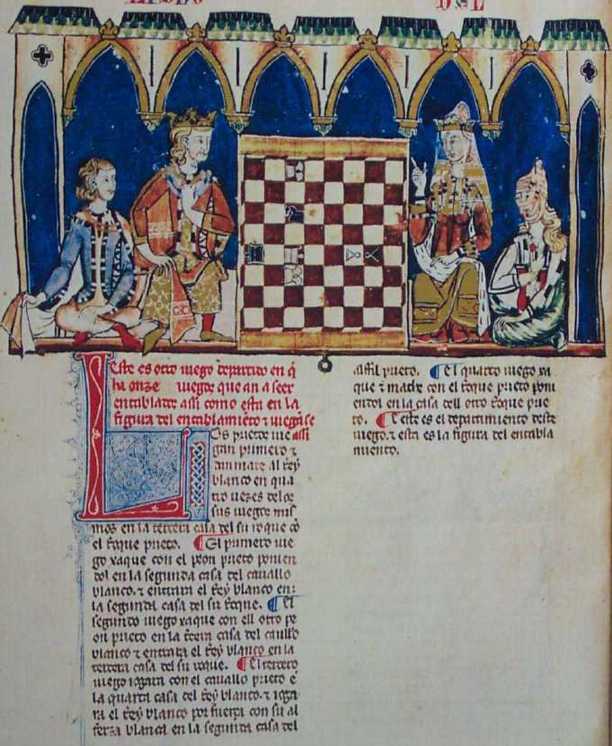 LIBRO
DEL
Este es otro iuego departido en q̃
ha onze iuegos que an a seer
entablados assi como esta en la
figura del entablamiẽto ⁊ iuegasse
assi
Los prietos iue
gan primero ⁊
dan mate al rey
blanco en qua
tro uezes delos
sus iuegos mis
mos en la tercera casa del su roque cõ
el Roque prieto. El primero iue
go xaque con el peon prieto ponien
dol en la segunda casa del cauallo
blanco. ⁊ entrara el Rey blanco en
la segunda casa del su Roque. El
segundo iuego xaque con ell otro pe
on prieto en la tercera casa del cauallo
blanco ⁊ entrara el Rey blanco en la
tercera casa del su roque. El tercero
iuego iogara con el cauallo prieto ẽ
la quarta casa del Rey blanco. ⁊ ioga
ra el Rey blanco por fuerça con su al
ferza blanca en la segunda casa del
alffil prieto. El quarto iuego xa
que ⁊ mathe con el Roque prieto poni
endol en la casa dell otro Roque prie
to. E este es el departimiento deste
iuego. ⁊ esta es la figura del entabla
miento.